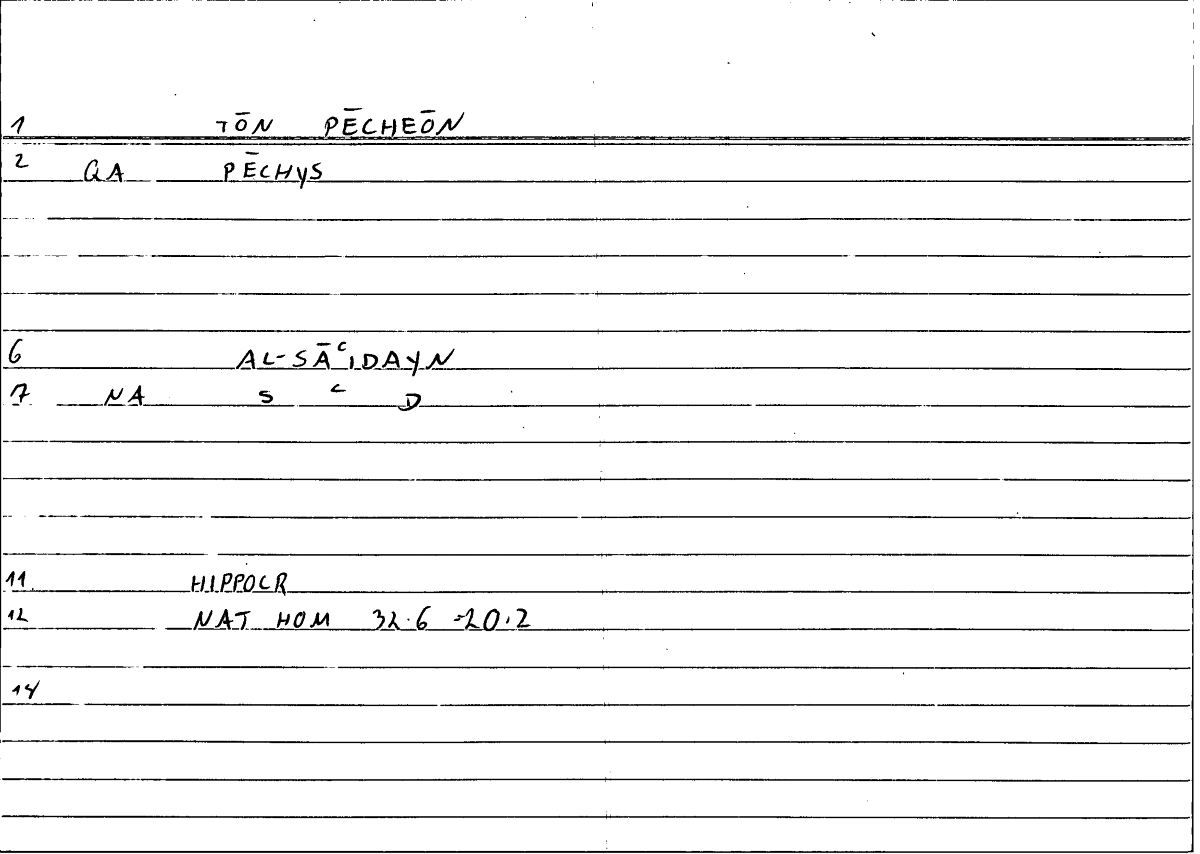 1 TŌN PĒCHEŌN
2 QA PĒCHYS
6 AL-SĀʿIDAYN
7 NA S ʿ D
11 HIPPOCR
12 NAT HOM 32.6 =20.2
14